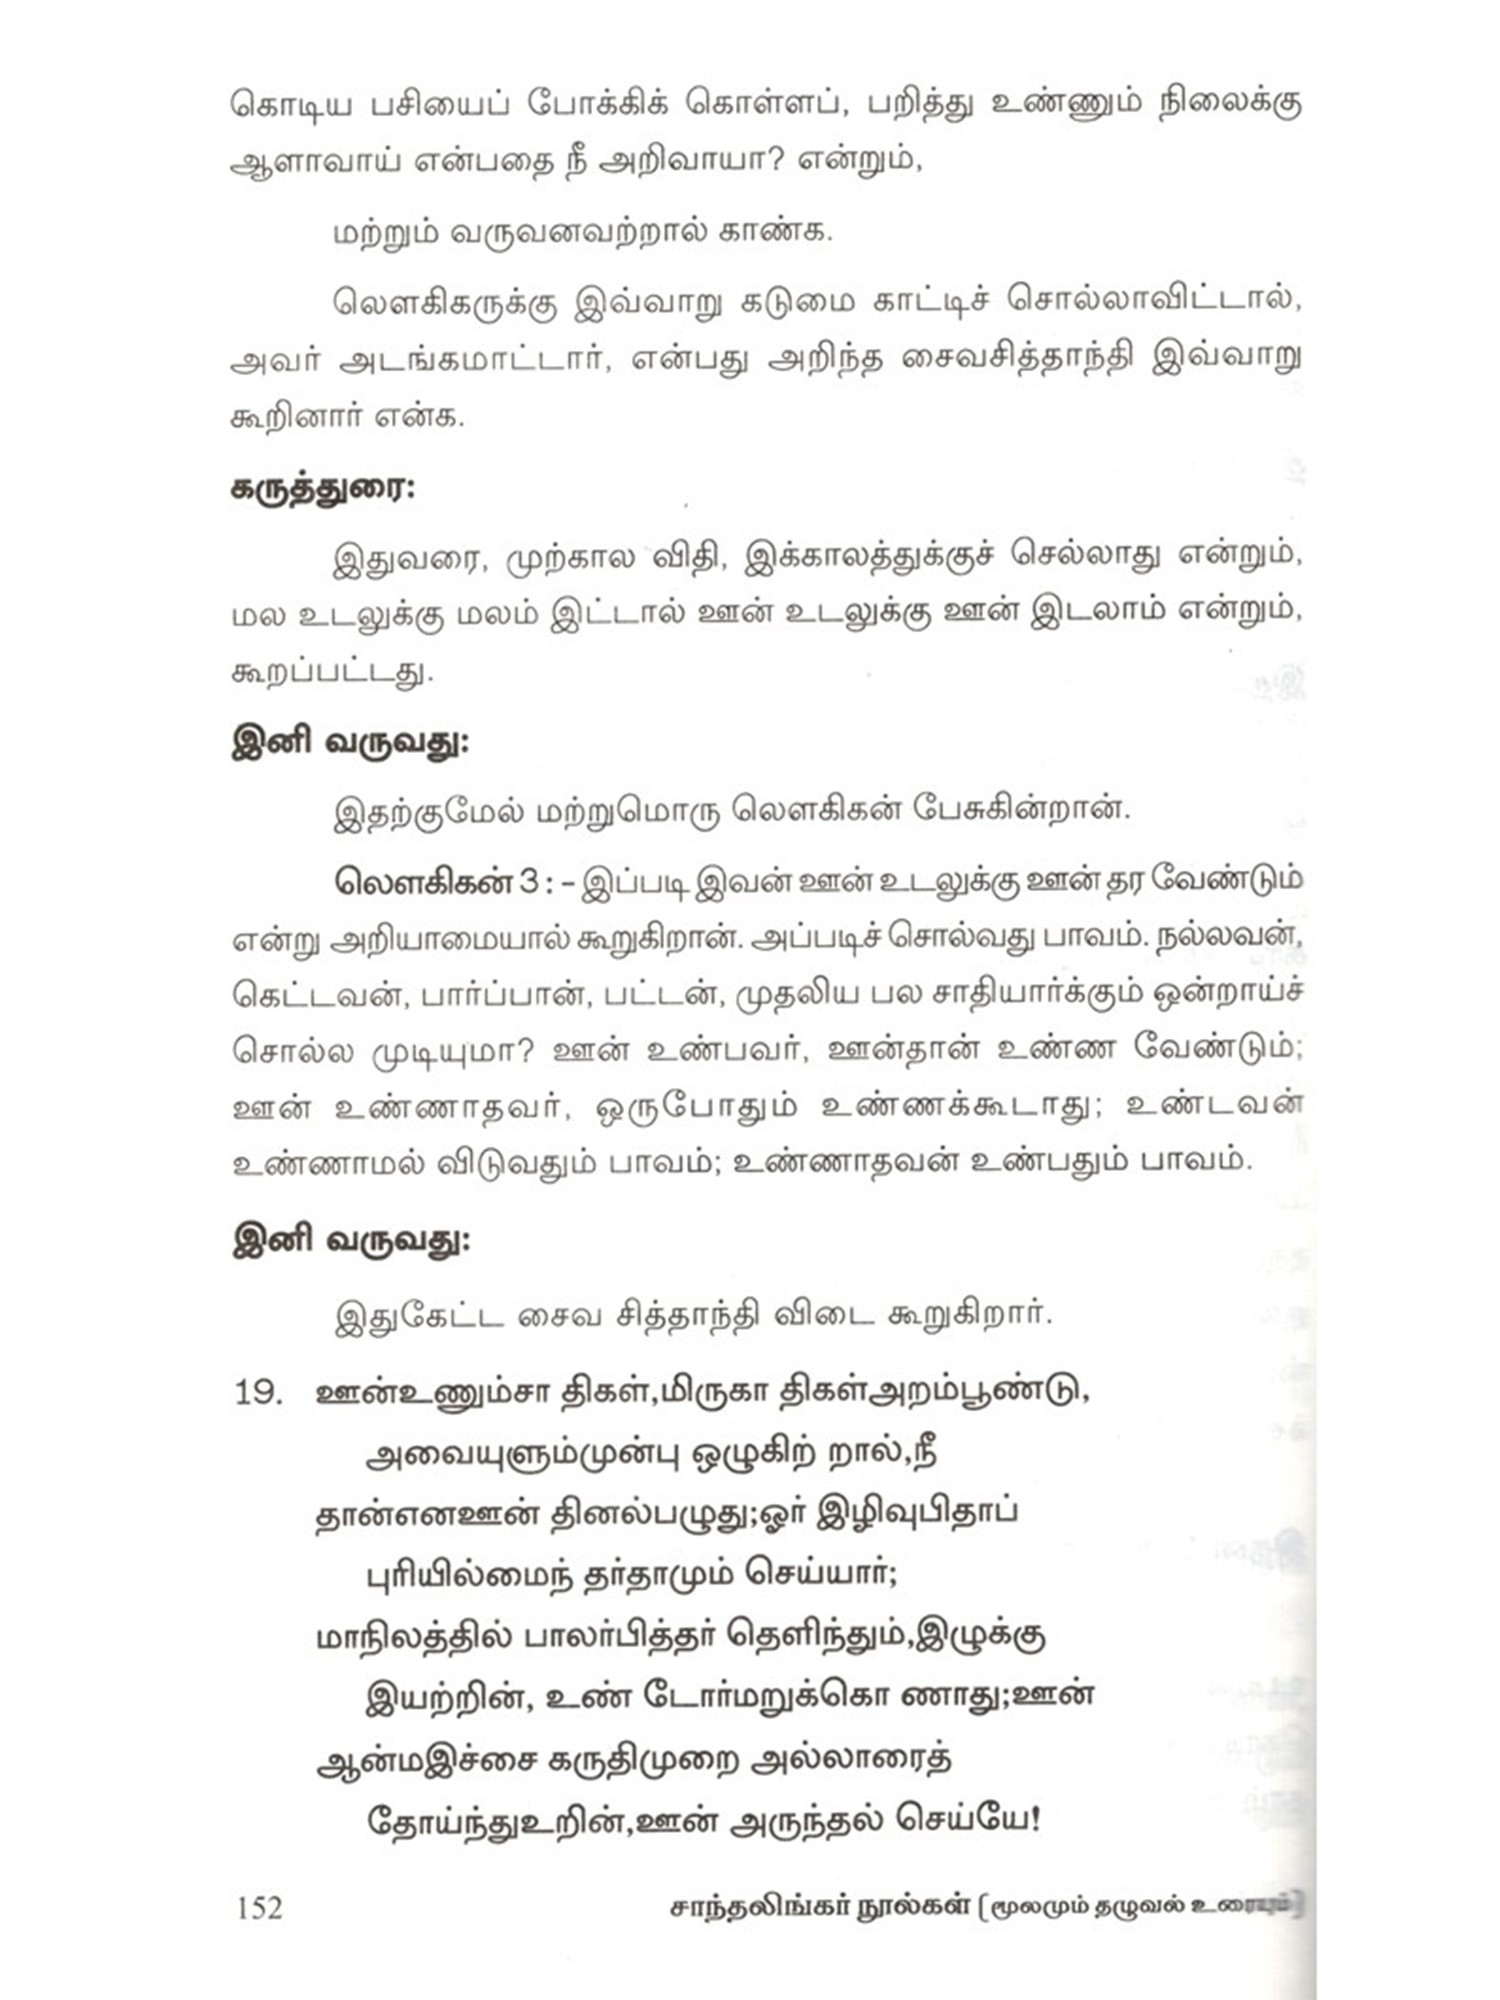 கொடிய பசியைப் போக்கிக் கொள்ளப், பறித்து உண்ணும் நிலைக்கு
ஆளாவாய் என்பதை நீ அறிவாயா? என்றும்,
மற்றும் வருவனவற்றால் காண்க.
லௌகிகருக்கு இவ்வாறு கடுமை காட்டிச் சொல்லாவிட்டால்,
அவர் அடங்கமாட்டார், என்பது அறிந்த சைவசித்தாந்தி இவ்வாறு
கூறினார் என்க.
கருத்துரை:
இதுவரை, முற்கால விதி, இக்காலத்துக்குச் செல்லாது என்றும்,
மல உடலுக்கு மலம் இட்டால் ஊன் உடலுக்கு ஊன் இடலாம் என்றும்,
கூறப்பட்டது.
இனி வருவது:
இதற்குமேல் மற்றுமொரு லௌகிகன் பேசுகின்றான்.
லௌகிகன் 3 : - இப்படி இவன் ஊன் உடலுக்கு ஊன் தர வேண்டும்
என்று அறியாமையால் கூறுகிறான். அப்படிச் சொல்வது பாவம். நல்லவன்,
கெட்டவன், பார்ப்பான், பட்டன், முதலிய பல சாதியார்க்கும் ஒன்றாய்ச்
சொல்ல முடியுமா? ஊன் உண்பவர், ஊன்தான் உண்ண வேண்டும்;
ஊன் உண்ணாதவர், ஒருபோதும் உண்ணக்கூடாது; உண்டவன்
உண்ணாமல் விடுவதும் பாவம்; உண்ணாதவன் உண்பதும் பாவம்.
இனி வருவது:
இதுகேட்ட சைவ சித்தாந்தி விடை கூறுகிறார்.
19. ஊன்உணும்சா திகள்,மிருகா திகள்அறம்பூண்டு,
அவையுளும்முன்பு ஒழுகிற் றால்,நீ
தான்எனஊன் தினல்பழுது;ஓர் இழிவுபிதாப்
புரியில்மைந் தர்தாமும் செய்யார்;
மாநிலத்தில் பாலர்பித்தர் தெளிந்தும்,இழுக்கு
இயற்றின், உண் டோர்மறுக்கொ ணாது;ஊன்
ஆன்மஇச்சை கருதிமுறை அல்லாரைத்
தோய்ந்துஉறின்,ஊன் அருந்தல் செய்யே!
152 சாந்தலிங்கர் நூல்கள் (மூலமும் தழுவல் உரையும்)